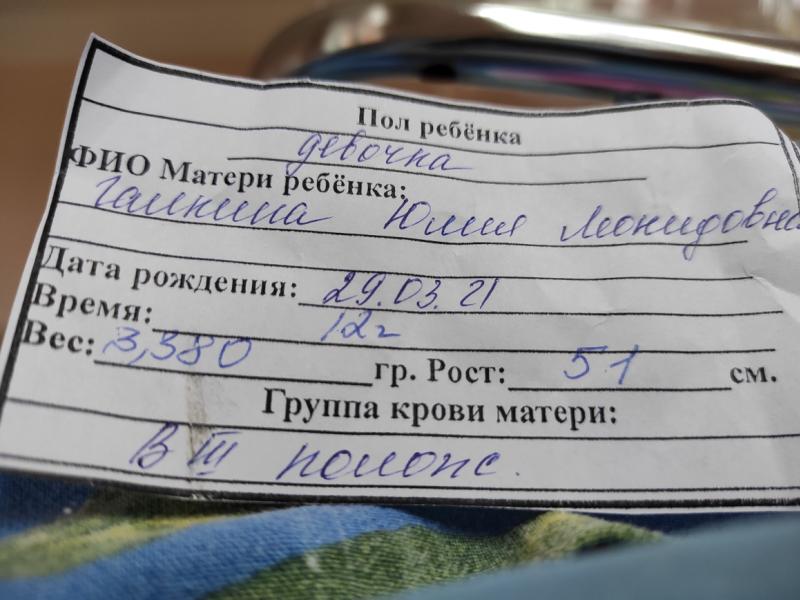 Пол ребёнка
девочка
ФИО Матери ребёнка:
Галкина Юлия Леонидовна
Дата рождения: 29.03.21
Время: 12ч
Вес: 3,380 гр. Рост: 51 см.
Группа крови матери:
В III полож.